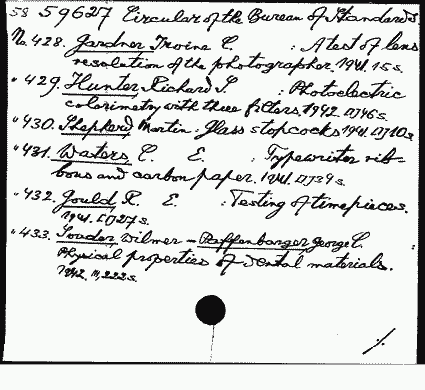 58 59627 Circular of the Bureau of Standards
No. 428. Gardner Irvine C. : A test of lens
resolution of the photographer. 1941. 15 s.
" 429. Hunter, Richard S. : Photoelectric
colorimetry with three filters. 1942. 46 s.
" 430. Shepherd Martin : Glass stopcocks 1941. 10 s.
" 431. Waters C. E. : Typewriter rib-
bons and carbon paper. 1941. 39 s.
" 432. Gould R. E. : Testing of timepieces.
1941. 27 s.
" 433. Souder, Wilmer - Paffenbarger George C.
Physical properties of dental materials.
1942. 222 s.